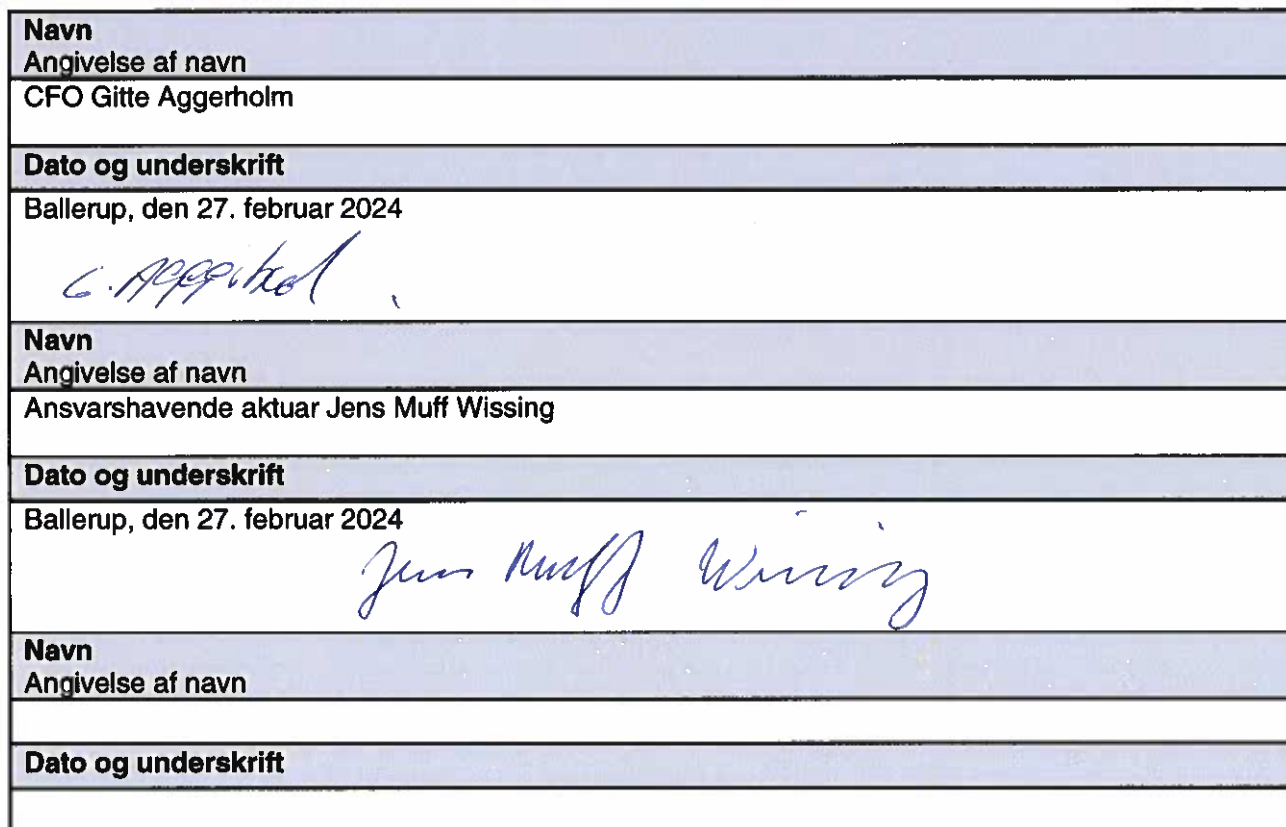 Navn
Angivelse af navn
CFO Gitte Aggerholm
Dato og underskrift
Ballerup, den 27. februar 2024
Navn
Angivelse af navn
Ansvarshavende aktuar Jens Muff Wissing
Dato og underskrift
Ballerup, den 27. februar 2024
Jens Muff Wissing
Navn
Angivelse af navn
Dato og underskrift